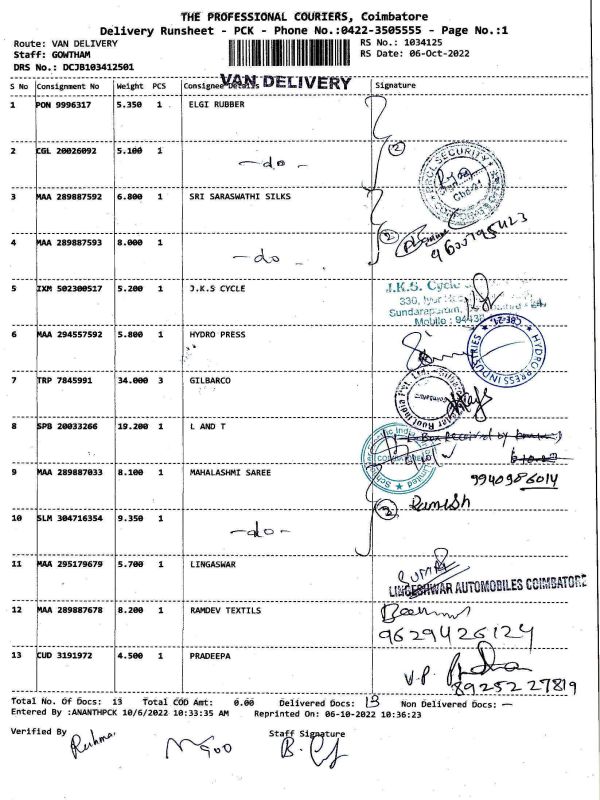 THE PROFESSIONAL COURIERS, Coimbatore
Delivery Runsheet - PCK - Phone No.:0422-3505555 - Page No.:1
Route: VAN DELIVERY RS No.: 1034125
Staff: GOWTHAM RS Date: 06-Oct-2022
DRS No.: DCJB103412501
VAN DELIVERY
S No Consignment No Weight PCS Consignee Details Signature
1 PON 9996317 5.350 1 ELGI RUBBER
2
2 CGL 20026092 5.100 1 -do-
SECURITY
3 MAA 289887592 6.800 1 SRI SARASWATHI SILKS
2
4 MAA 289887593 8.000 1 -do-
5 IXM 502300517 5.200 1 J.K.S CYCLE
J.K.S. Cycle
330,
Sundarapuram,
Mobile :
6 MAA 294557592 5.800 1 HYDRO PRESS
HYDRO PRESS INDUSTRIES ★ CBE-24. ★
7 TRP 7845991 34.000 3 GILBARCO
8 SPB 20033266 19.200 1 L AND T
1 Box Received by
9 MAA 289887033 8.100 1 MAHALASHMI SAREE
9940986014
Ramesh
10 SLM 304716354 9.350 1 -do-
11 MAA 295179679 5.700 1 LINGASWAR
LINGESHWAR AUTOMOBILES COIMBATORE
12 MAA 289887678 8.200 1 RAMDEV TEXTILS
9629426124
13 CUD 3191972 4.500 1 PRADEEPA
V.P.
8925227819
Total No. Of Docs: 13 Total COD Amt: 0.00 Delivered Docs: 13 Non Delivered Docs: —
Entered By :ANANTHPCK 10/6/2022 10:33:35 AM Reprinted On: 06-10-2022 10:36:23
Verified By Staff Signature